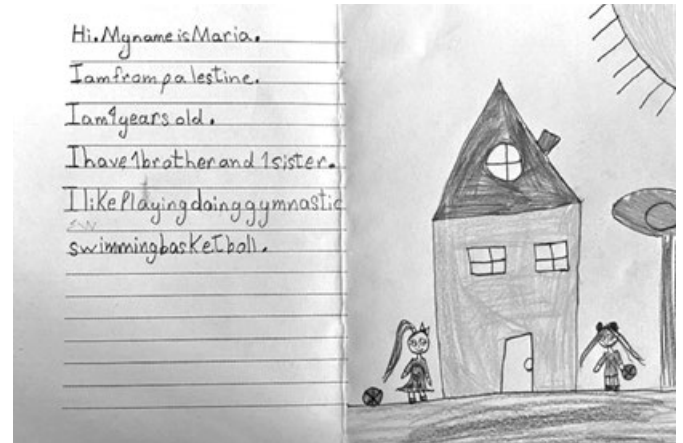 Hi. My name is Maria.
I am from palestine.
I am 9 years old.
I have 1 brother and 1 sister.
I like Playing doing gymnastic
sw
swimming basketball.